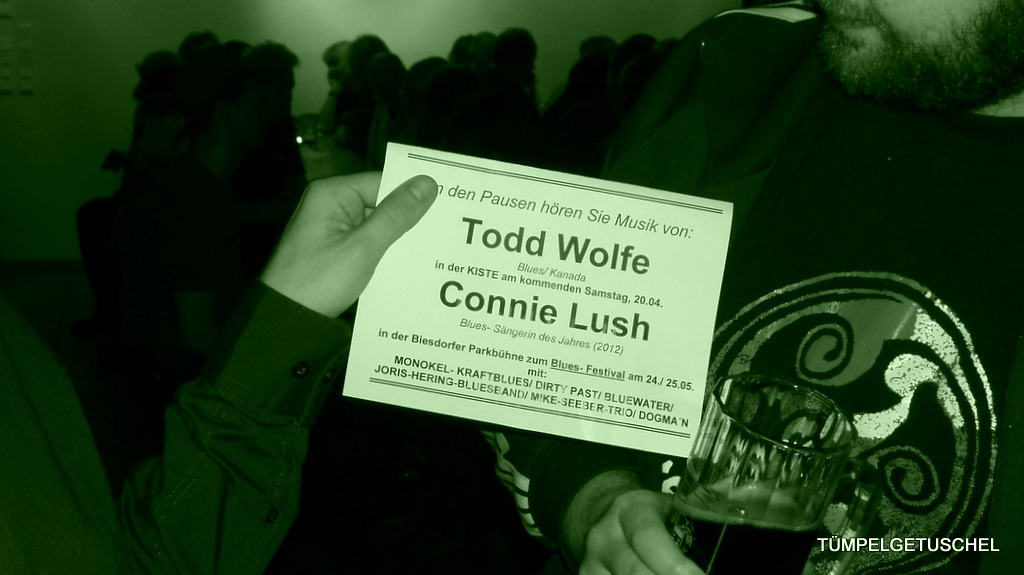 n den Pausen hören Sie Musik von:
Todd Wolfe
Blues/ Kanada
in der KISTE am kommenden Samstag, 20.04.
Connie Lush
Blues- Sängerin des Jahres (2012)
in der Biesdorfer Parkbühne zum Blues- Festival am 24./ 25.05.
mit:
MONOKEL- KRAFTBLUES/ DIRTY PAST/ BLUEWATER/
JORIS-HERING-BLUESBAND/ MIKE-SEEBER-TRIO/ DOGMA'N
TÜMPELGETUSCHEL